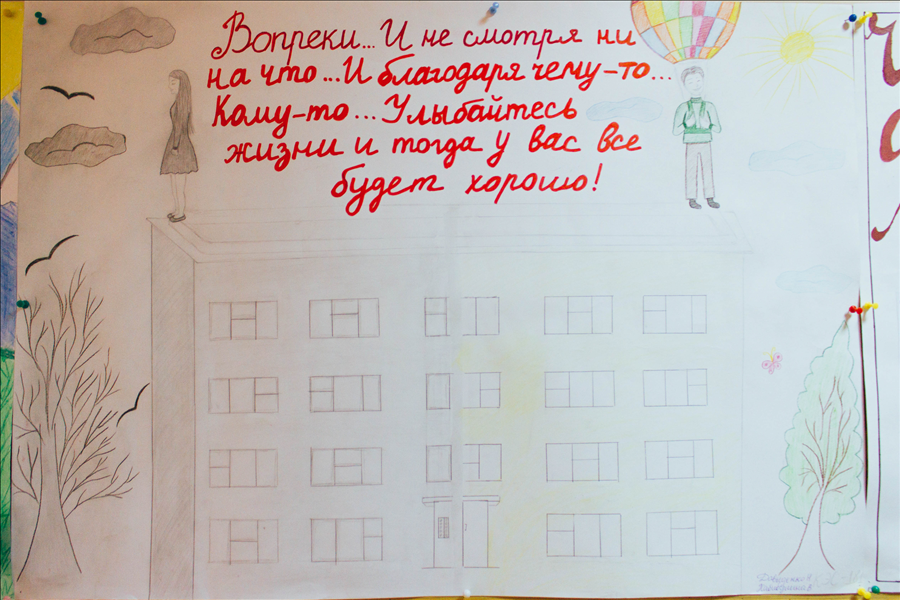 Вопреки... И не смотря ни
на что... И благодаря чему-то...
Кому-то... Улыбайтесь
жизни и тогда у вас все
будет хорошо!